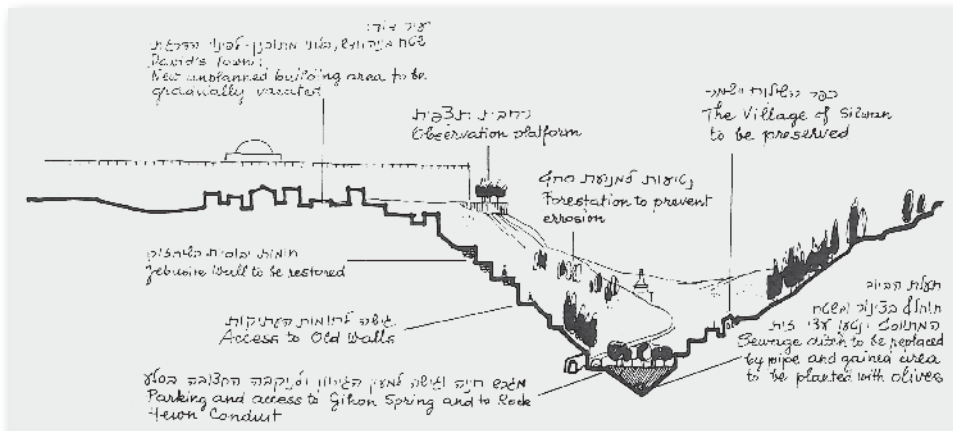 עיר דוד:
שטח מגורים חדש, בלתי מתוכנן - לפינוי הדרגתי
David's Town:
New unplanned building area to be
gradually vacated
רחבת תצפית
Observation platform
כפר השילוח ישומר
The Village of Silwan
to be preserved
נטיעות למניעת סחף
Forestation to prevent
errosion
חומות יבוסיות
Jebusite Wall to be restored
גישה לחומות העתיקות
Access to Old Walls
תעלת הביוב
תוחלף בצינור ושטח
המתווסף ינטע עצי זית
Sewage ditch to be replaced
by pipe and gained area
to be planted with olives
מגרש חניה וגישה למעין הגיחון ולניקבה החצובה בסלע
Parking and access to Gihon Spring and to Rock
Hewn Conduit